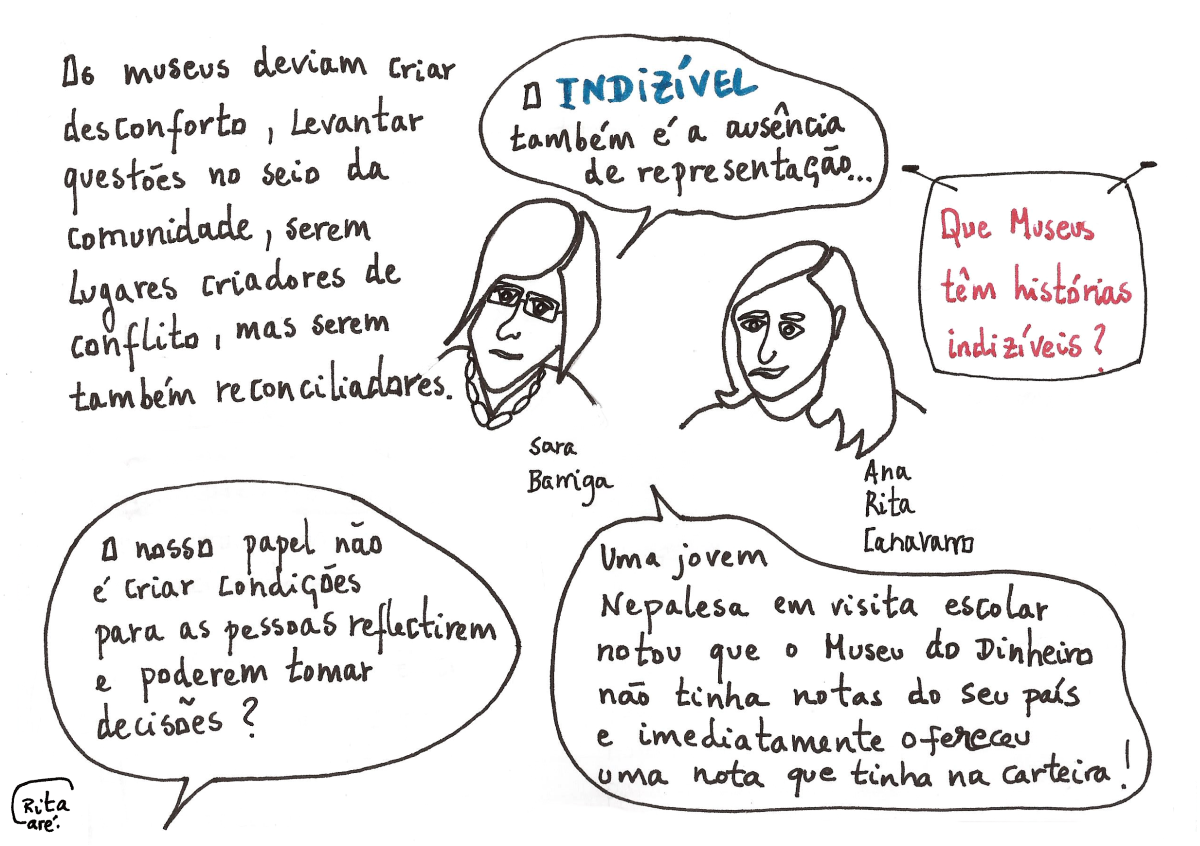 Os museus deviam criar
desconforto, levantar
questões no seio da
comunidade, serem
lugares criadores de
conflito, mas serem
também reconciliadores.
O INDIZÍVEL
também é a ausência
de representação...
Que Museus
têm histórias
indizíveis?
Sara
Barriga
Ana
Rita
Canavarro
O nosso papel não
é criar condições
para as pessoas reflectirem
e poderem tomar
decisões?
Uma jovem
Nepalesa em visita escolar
notou que o Museu do Dinheiro
não tinha notas do seu país
e imediatamente ofereceu
uma nota que tinha na carteira!
Rita
aré.